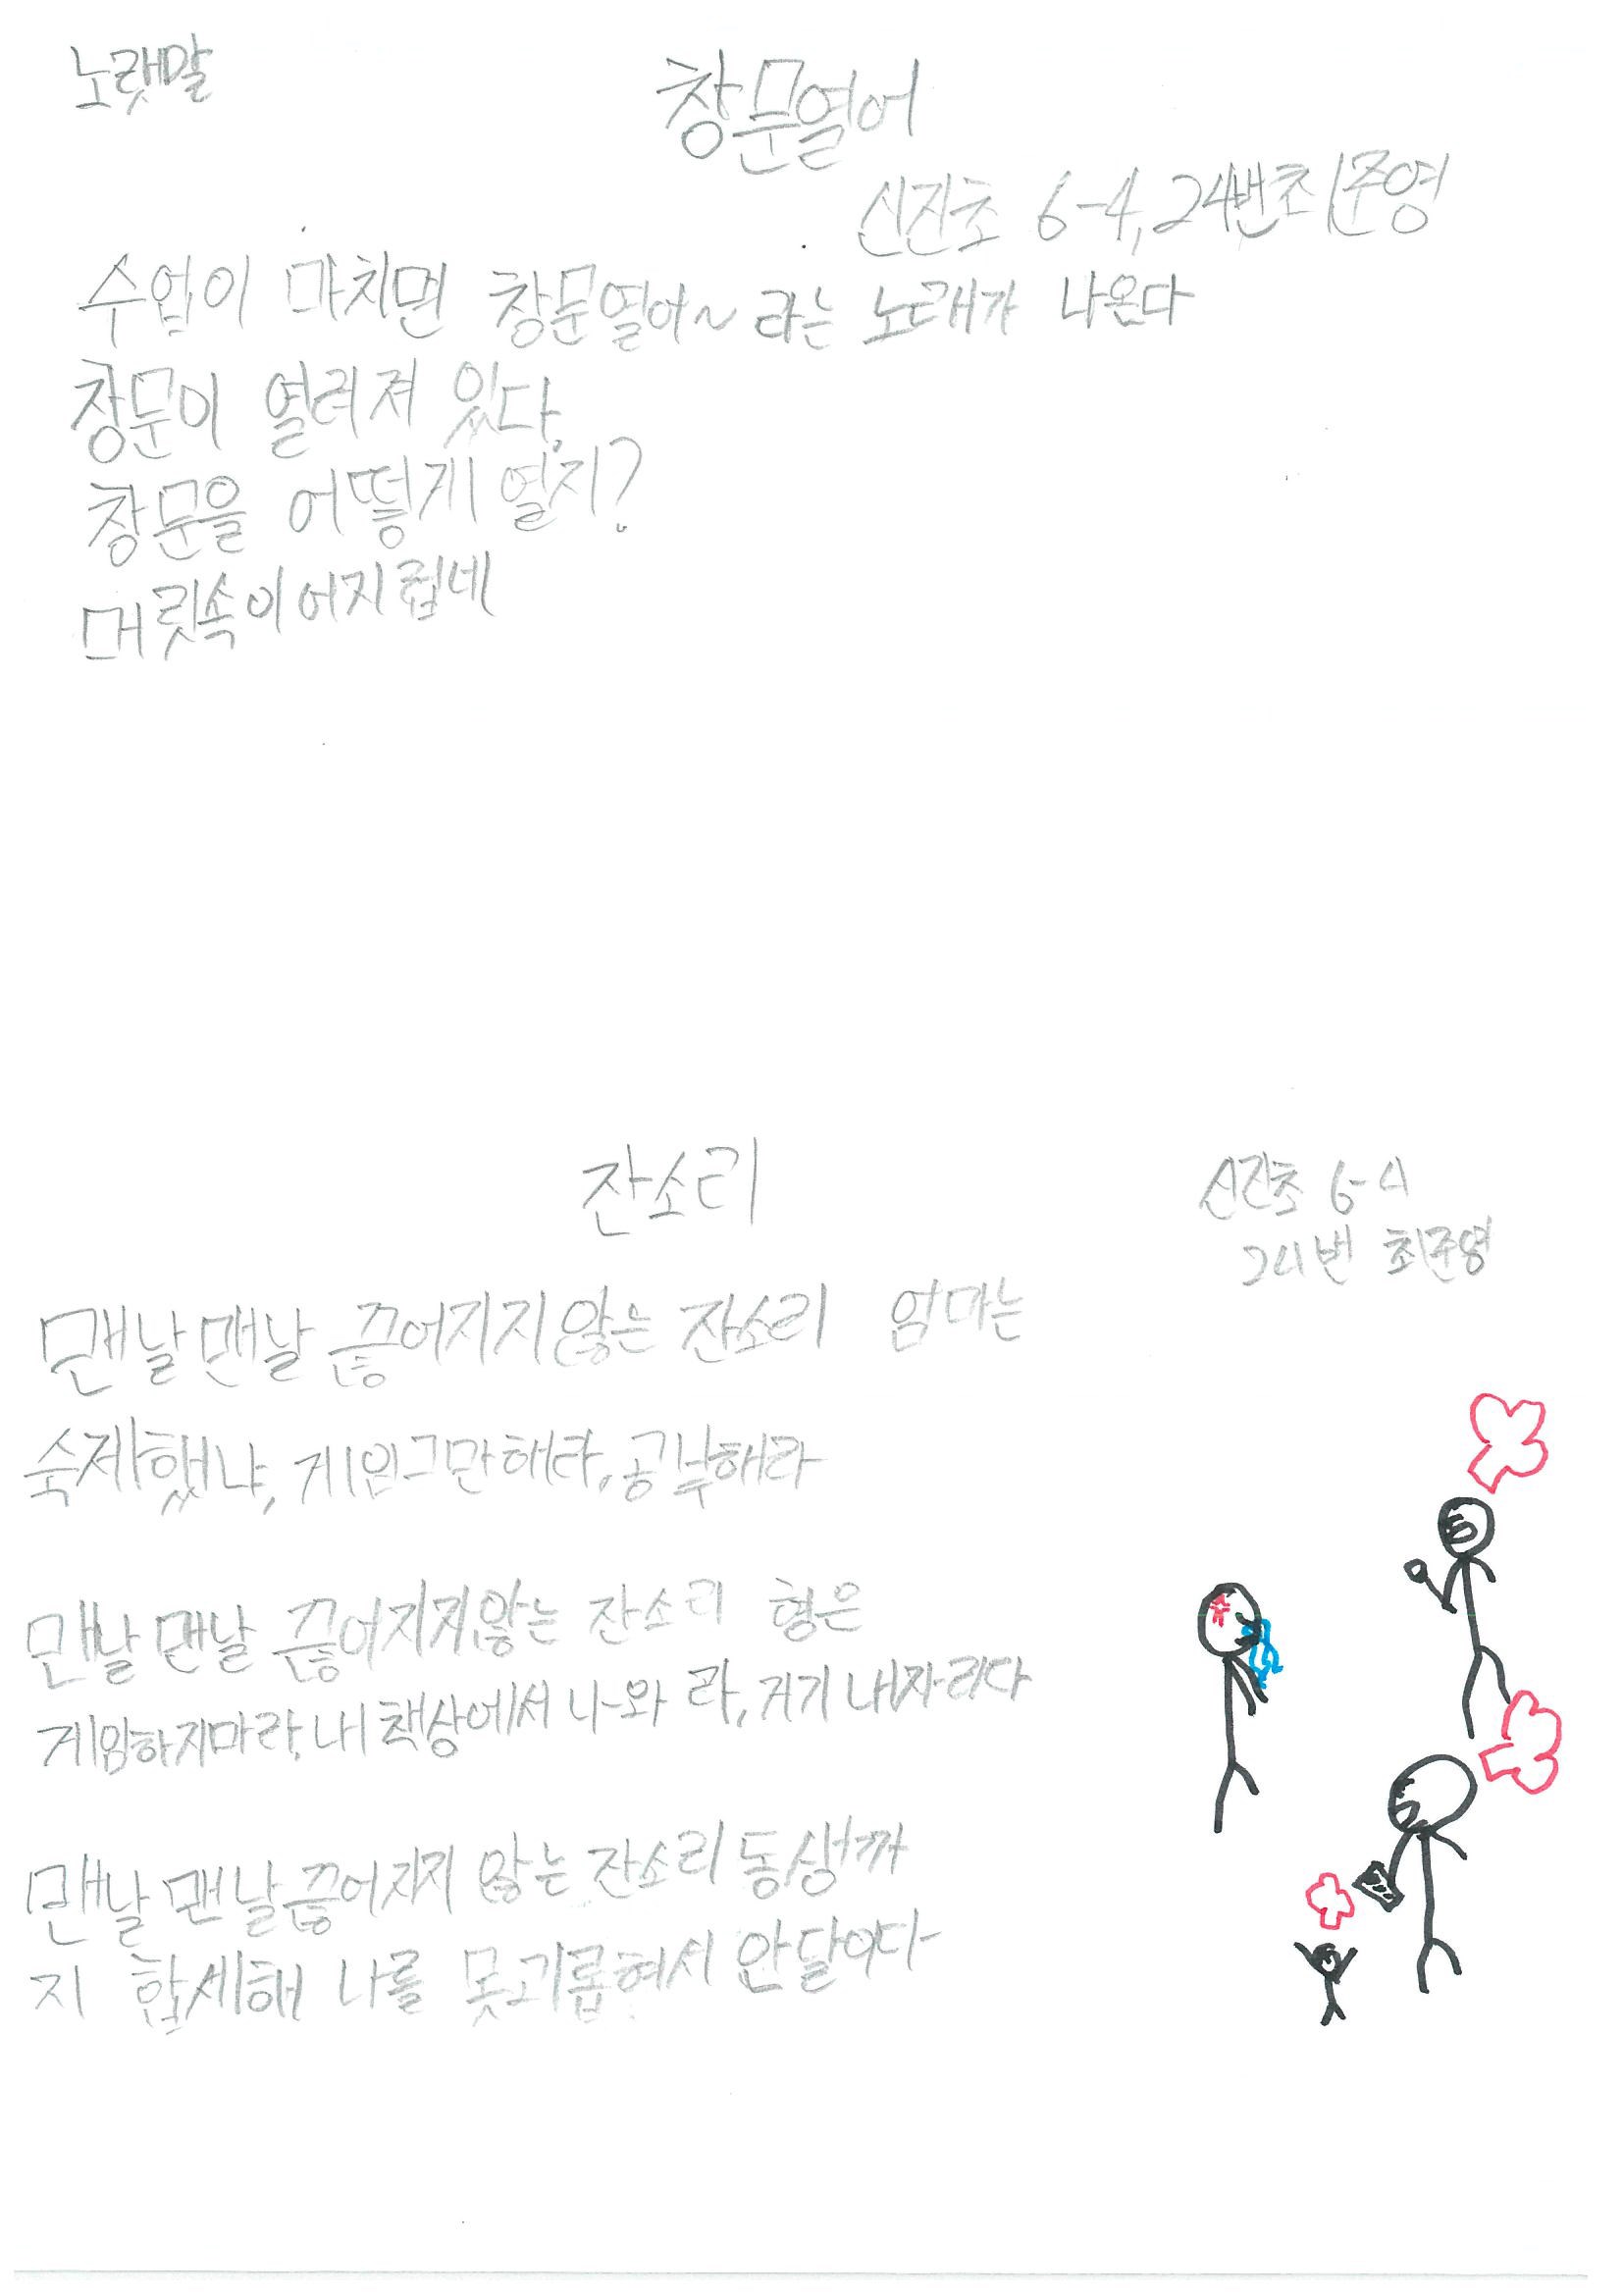 노랫말
창문열어
신진초 6-4, 24번 최준영
수업이 마치면 창문열어~ 라는 노래가 나온다
창문이 열려져 있다.
창문을 어떻게 열지?
머릿속이 어지럽네
잔소리
신진초 6-4
24번 최준영
맨날맨날 끊어지지않는 잔소리 엄마는
숙제했냐, 게임그만해라, 공부해라
맨날 맨날 끊어지지않는 잔소리 형은
게임하지마라, 내 책상에서 나와 라, 거기 내자리다
맨날 맨날 끊어지지 않는 잔소리 동생까
지 합세해 나를 못괴롭혀서 안달이다